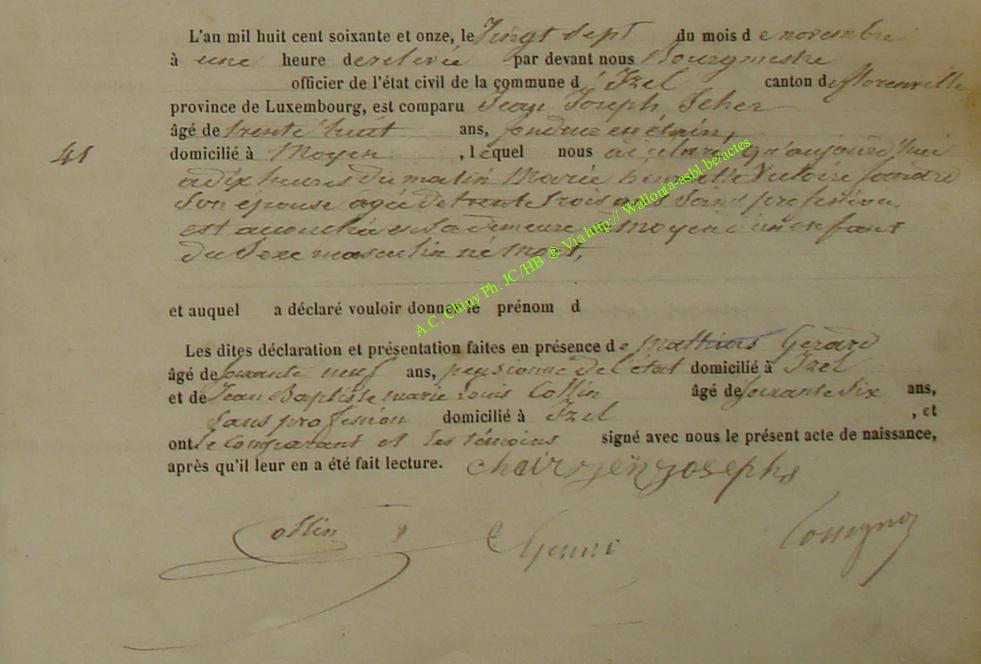 L'an mil huit cent soixante et onze, le Vingt sept du mois de novembre
à une heure de relevée par devant nous Bourgmestre
officier de l'état civil de la commune d'Izel canton de florenville
province de Luxembourg, est comparu Jean Joseph
âgé de trente huit ans, fondeur en étain,
41
domicilié à Moyen, lequel nous a déclaré qu'aujourd'hui
à dix heures du matin Marie Victoire
Son épouse agée de trente trois ans Sans profession
est accouchée en Sa demeure à Moyen d'un enfant
du Sexe masculin né Mort,
et auquel a déclaré vouloir donner le prénom d
Les dites déclaration et présentation faites en présence de Mathias Gerard
âgé de soixante neuf ans, pensionné de l'état domicilié à Izel
et de Jean Baptiste Marie Louis Collin âgé de soixante Six ans,
Sans profession domicilié à Izel, et
ont le Comparant et les témoins signé avec nous le présent acte de naissance,
après qu'il leur en a été fait lecture. josephs
Collin
A.C. Chiny Ph. JC/HB ® Via http:// Wallonia-asbl.be/actes